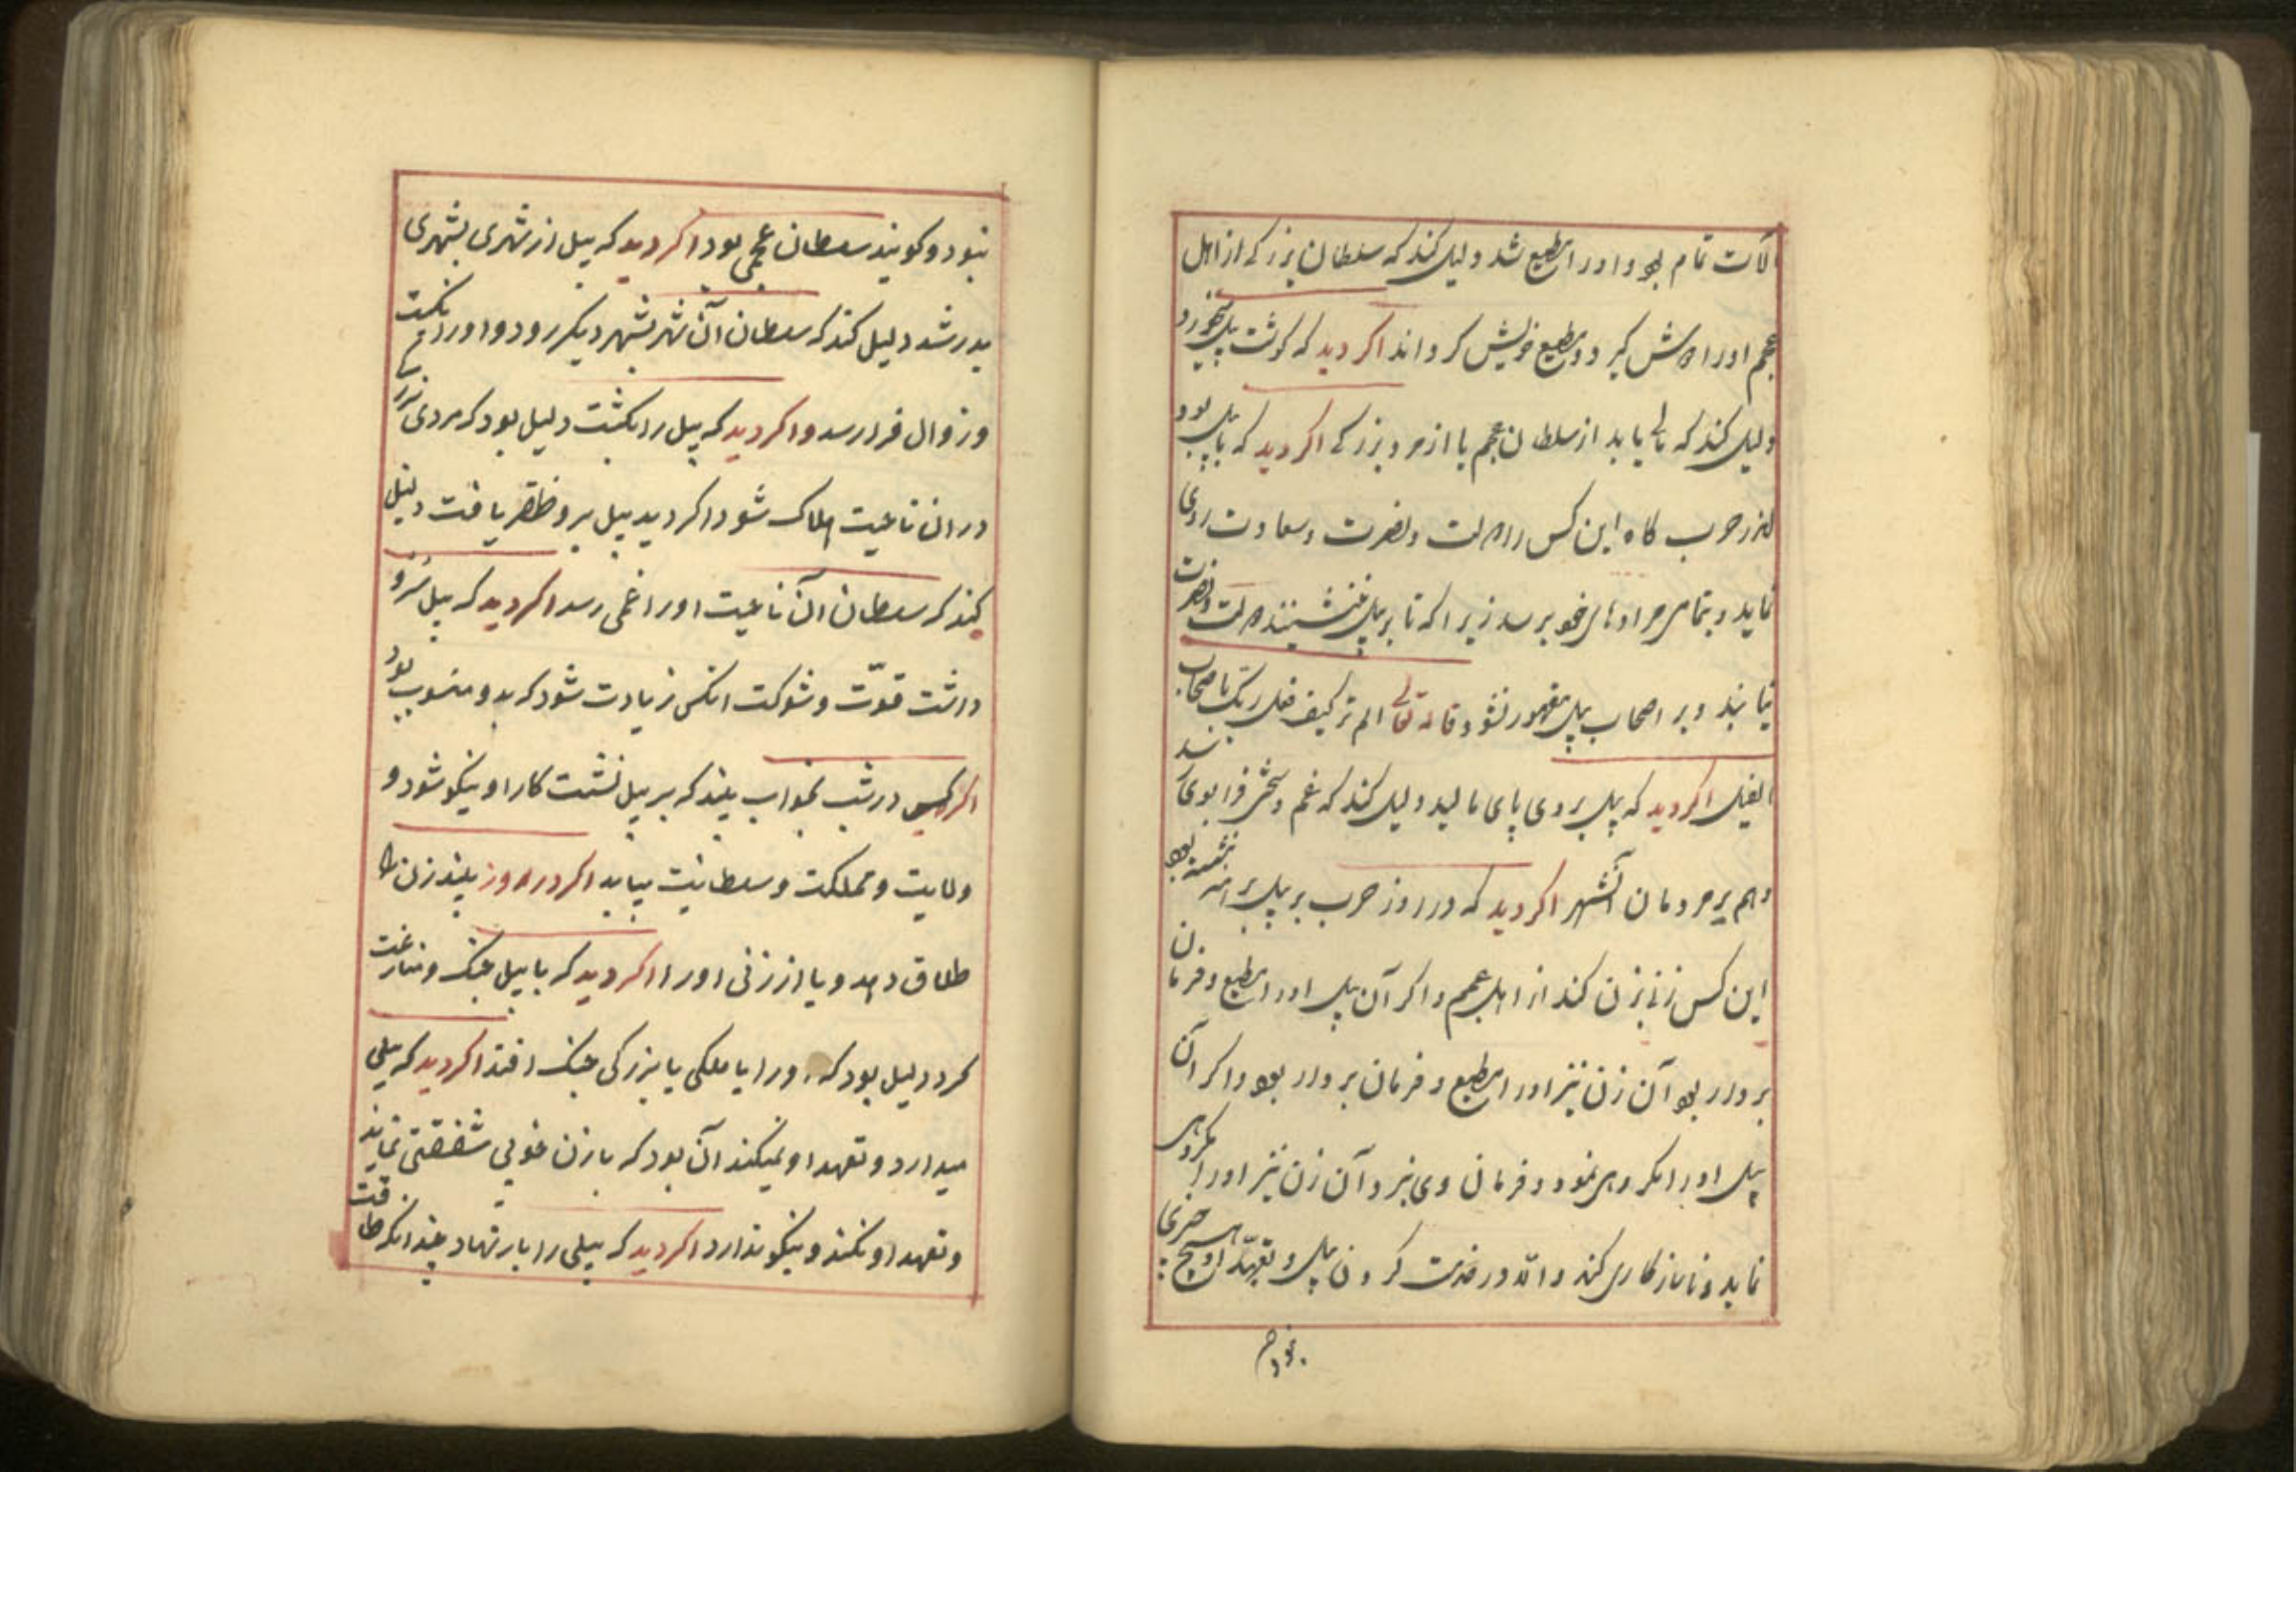 آلات تمام بود و او را مطیع شد دلیل کند که سلطان بزرکی از اهل
عجم او را کیرد و مطیع خویش کرداند اکر دید که کوشت پیل میخورد
دلیل کند که مالی یابد از سلطان عجم یا از مرد بزرکی اکر دید که با پیل بود
حرب کاه این کس را دولت و نصرت و سعادت روی
نماید و بتمامی مرادهای خود برسد زیرا که تا بر پیل ننشینند دولت و نصرت
نیابند و بر اصحاب پیل مقهور نشود قال تعالی الم تر کیف فعل ربک باصحاب
الفیل اکر دید که پیل بروی پای مالید دلیل کند که غم و سختی فرا بوی رسد
و هم بر مردمان آنشهر اکر دید که در روز حرب بر پیل نشسته بود
این کس زنی بزن کند از اهل عجم و اکر آن پیل او را مطیع و فرمان
بردار بود آن زن نیز او را مطیع و فرمان بردار بود و اکر آن
پیل او را مکروهی نمود و فرمان وی نبرد آن زن نیز او را مکروهی
نماید و ناسازکاری کند والله در خدمت کردن پیل و تعهد او هیچ خیری
نبود
نبود و کویند سلطان عجمی بود اکر دید که پیل از شهری بشهری
بدر شد دلیل کند که سلطان آن شهر بشهر دیکر رود و او را نکبت
و زوال فرا رسد و اکر دید که پیل را بکشت دلیل بود که مردی بزرک
در ان ناحیت هلاک شود اکر دید پیل برو ظفر یافت دلیل
کند که سلطان آن ناحیت او را غمی رسد اکر دید که پیل سرو
داشت قوّت و شوکت انکس زیادت شود که بدو منسوب بود
اکر کسی در شب بخواب بیند که بر پیل نشست کار او نیکو شود و
ولایت و مملکت و سلطانیت بیابد اکر در روز بیند زن را
طلاق دهد و یا از زنی او را اکر دید که با پیل جنک و منازعت
کرد دلیل بود که ورا با ملکی یا بزرکی جنک افتد اکر دید که پیلی
میدارد و تعهد او نمیکند آن بود که با زن خوبی شفقتی نماید
و تعهد او نکند و نیکو ندارد اکر دید که پیلی را بار نهاد چندانکه طاقت